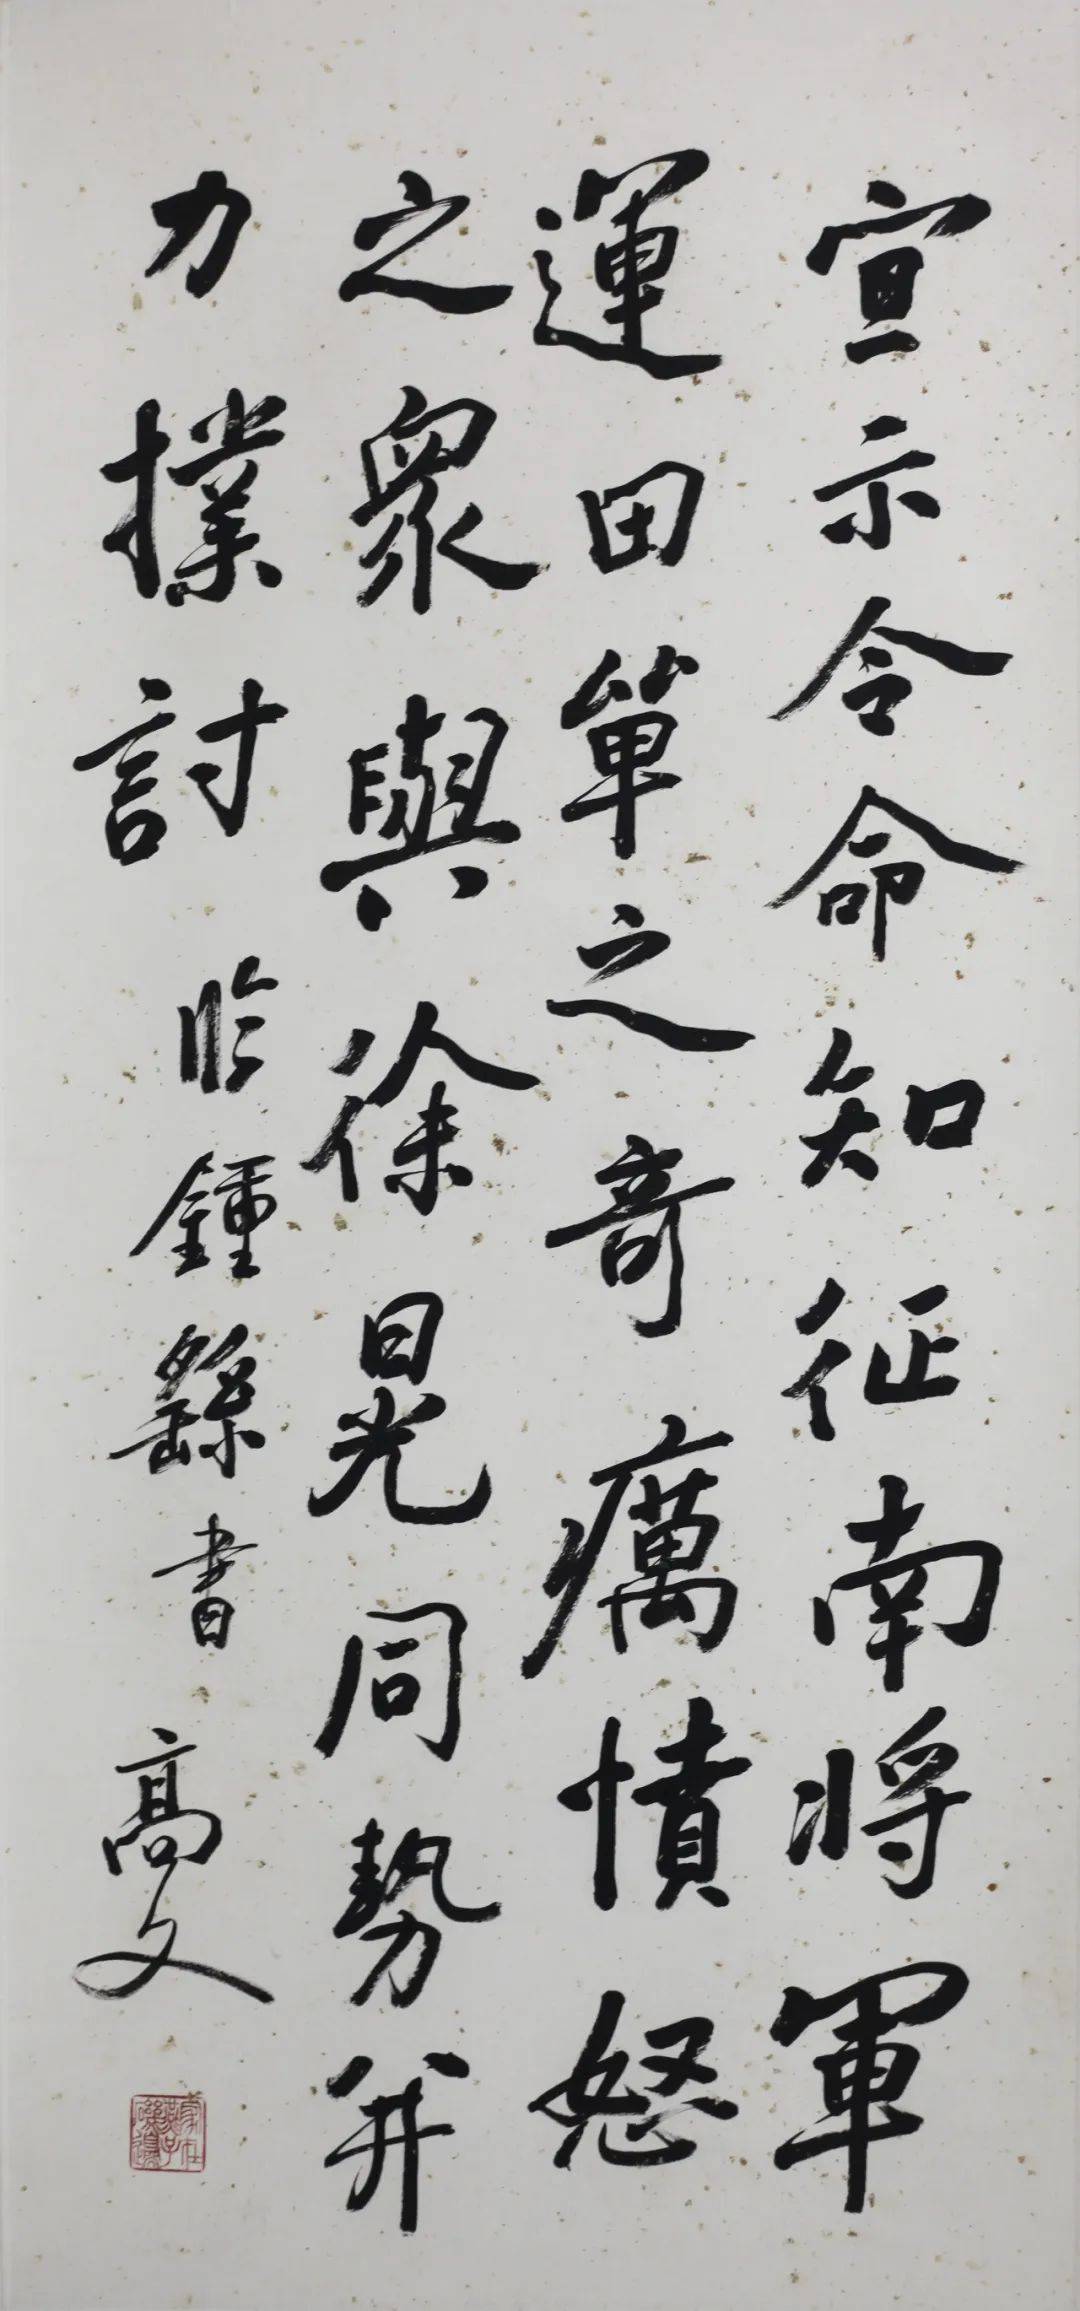 宣示令命知征南将軍
運田單之奇厲憤怒
之衆與徐晃同勢并
力撲討 临鍾繇書 高文